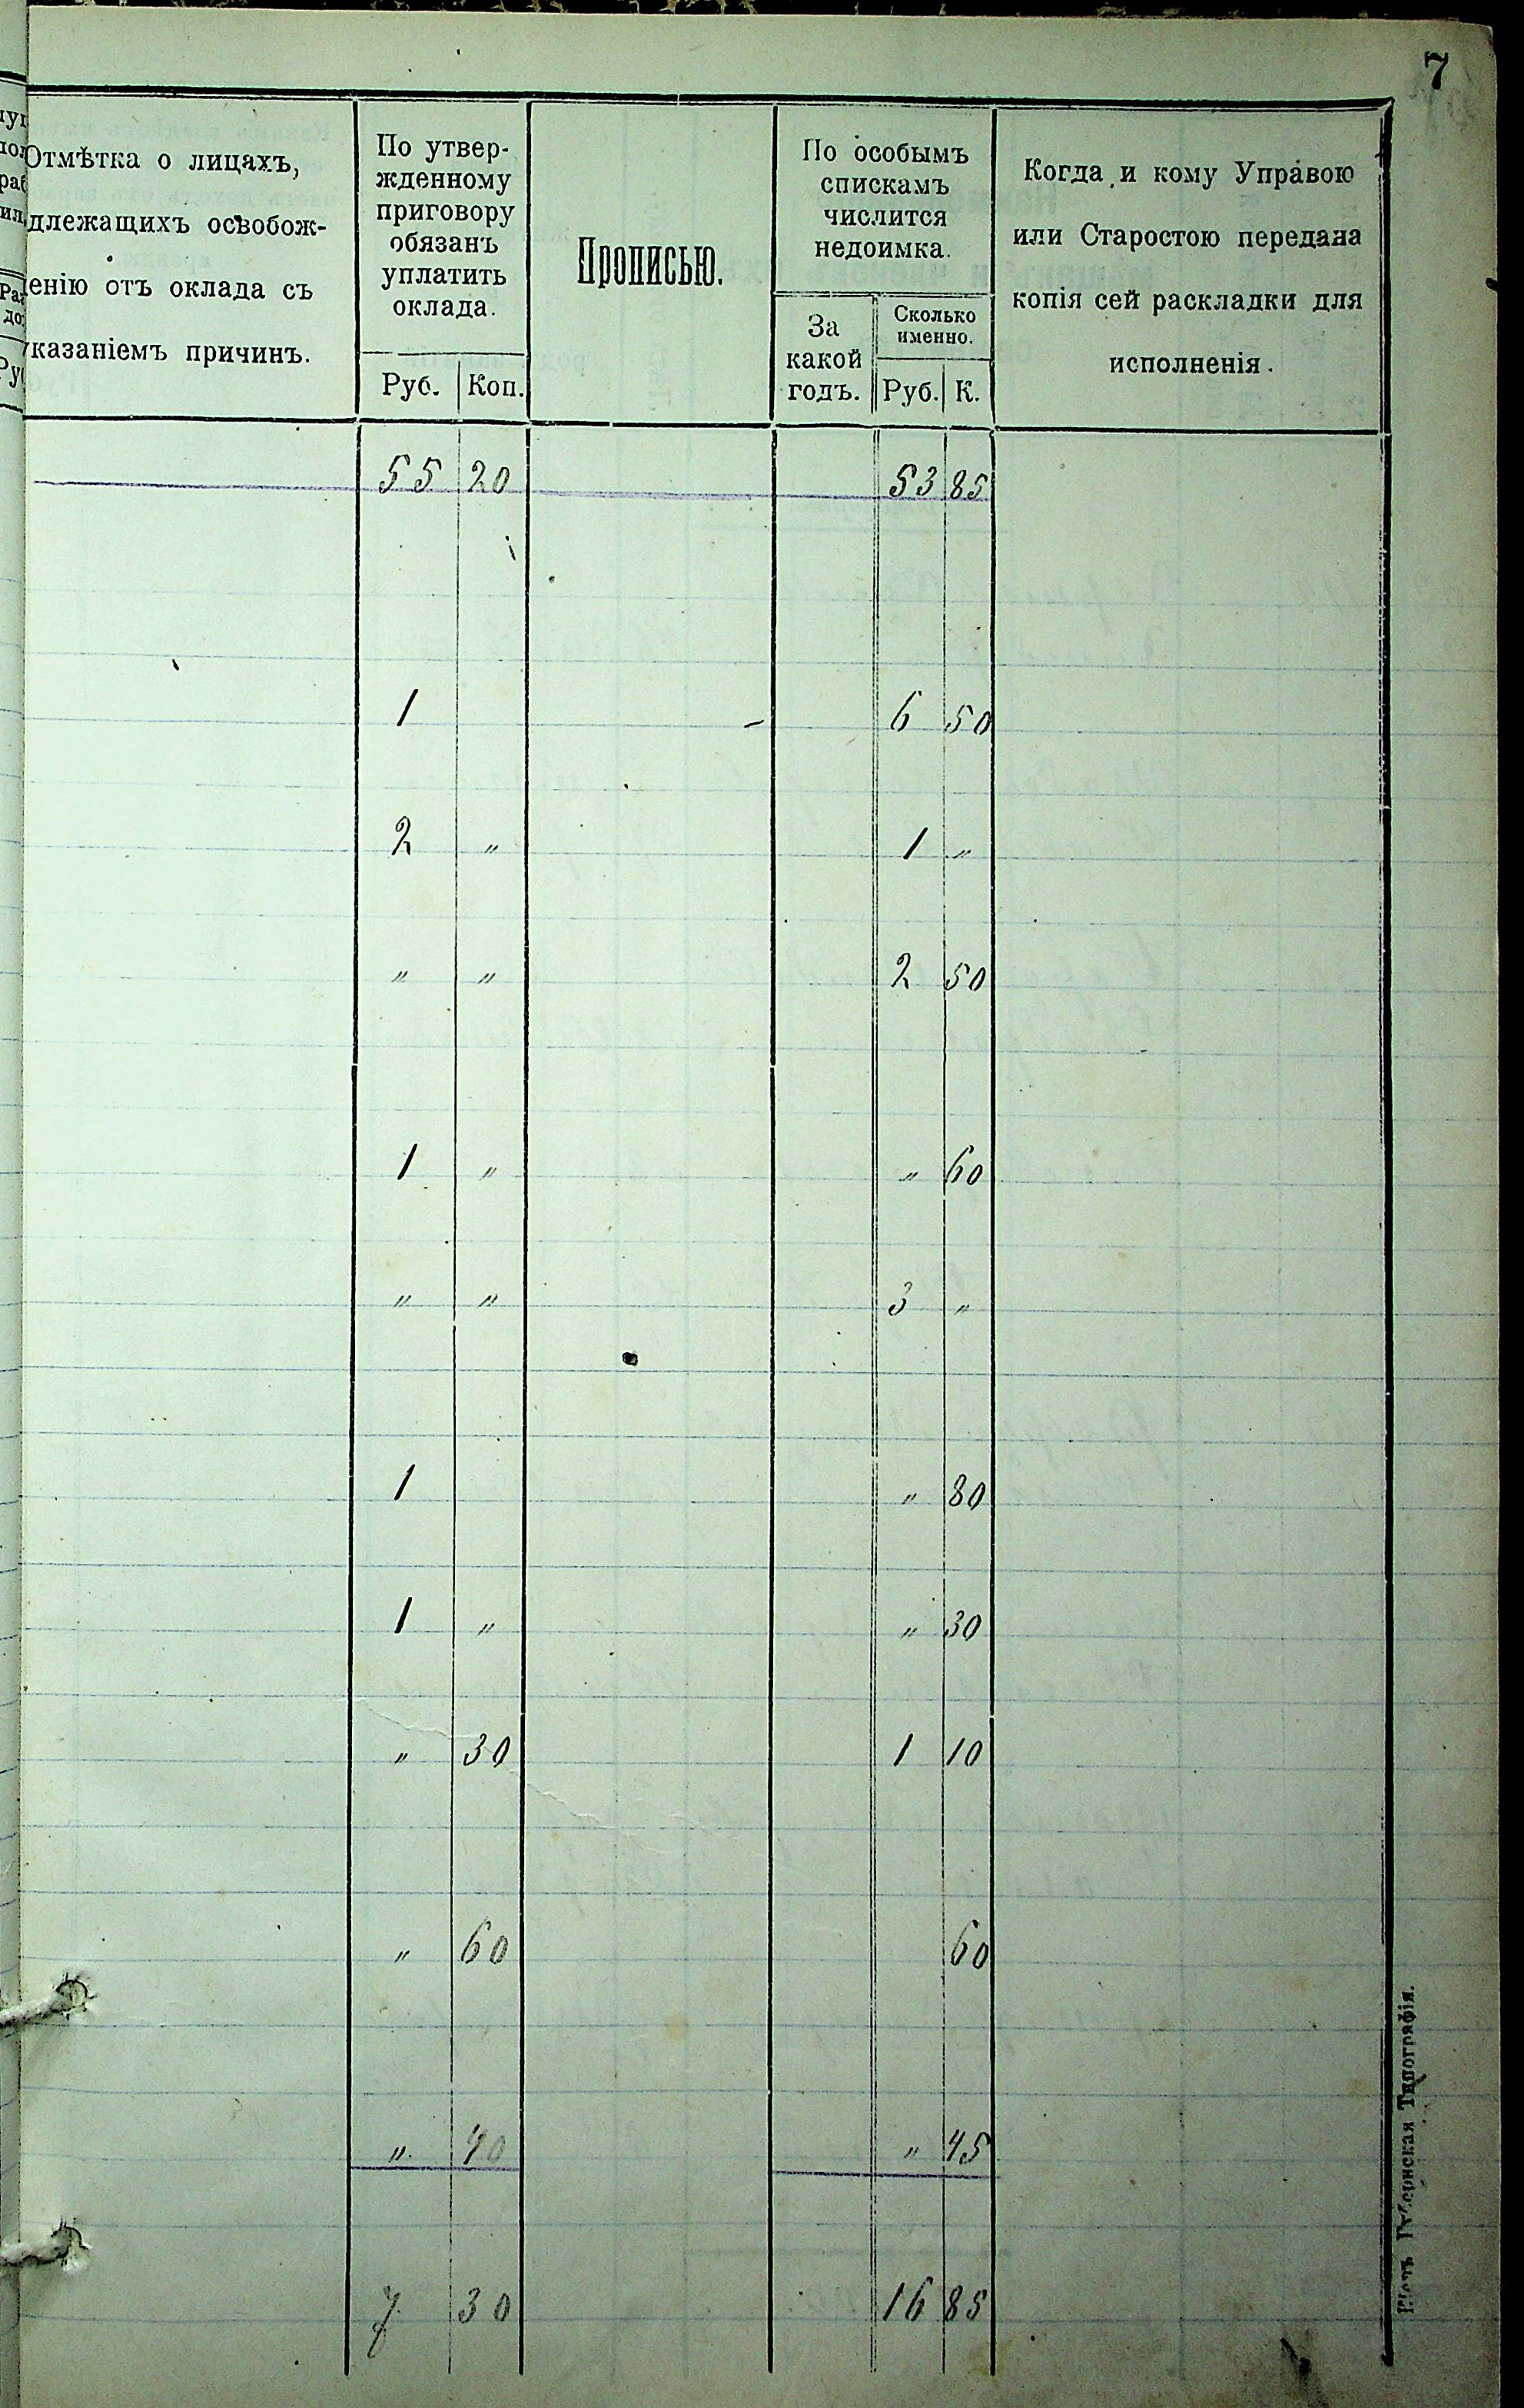 7
Отмѣтка о лицахъ,
длежащихъ освобож-
енію отъ оклада съ
указаніемъ причинъ.
По утвер-
жденному
приговору
обязанъ
уплатить
оклада.
Руб. Коп.
Прописью.
По особымъ
спискамъ
числится
недоимка.
За
какой
годъ.
Сколько
именно.
Руб. К.
Когда и кому Управою
или Старостою передана
копія сей раскладки для
исполненія.
55 20 53 85
1 6 50
2 " 1 "
" " 2 50
1 " " 60
" " 3 "
1 " 80
1 " " 30
" 30 1 10
" 60 60
" 40 " 45
7 30 16 85
Губернская Типографія.